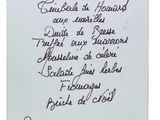 Timbale de Homard
aux morilles
Dinde de Bresse
Truffée aux marrons
Mousseline de céleri
Salade fines herbes
Fromages
Bûche de Noël